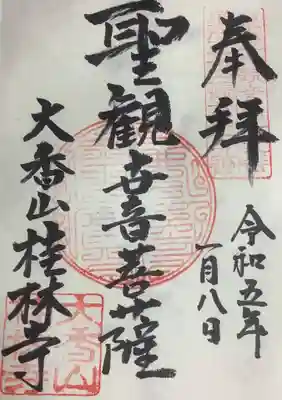 奉拝
令和五年
一月八日
聖観世音菩薩
大香山桂林寺
大香山